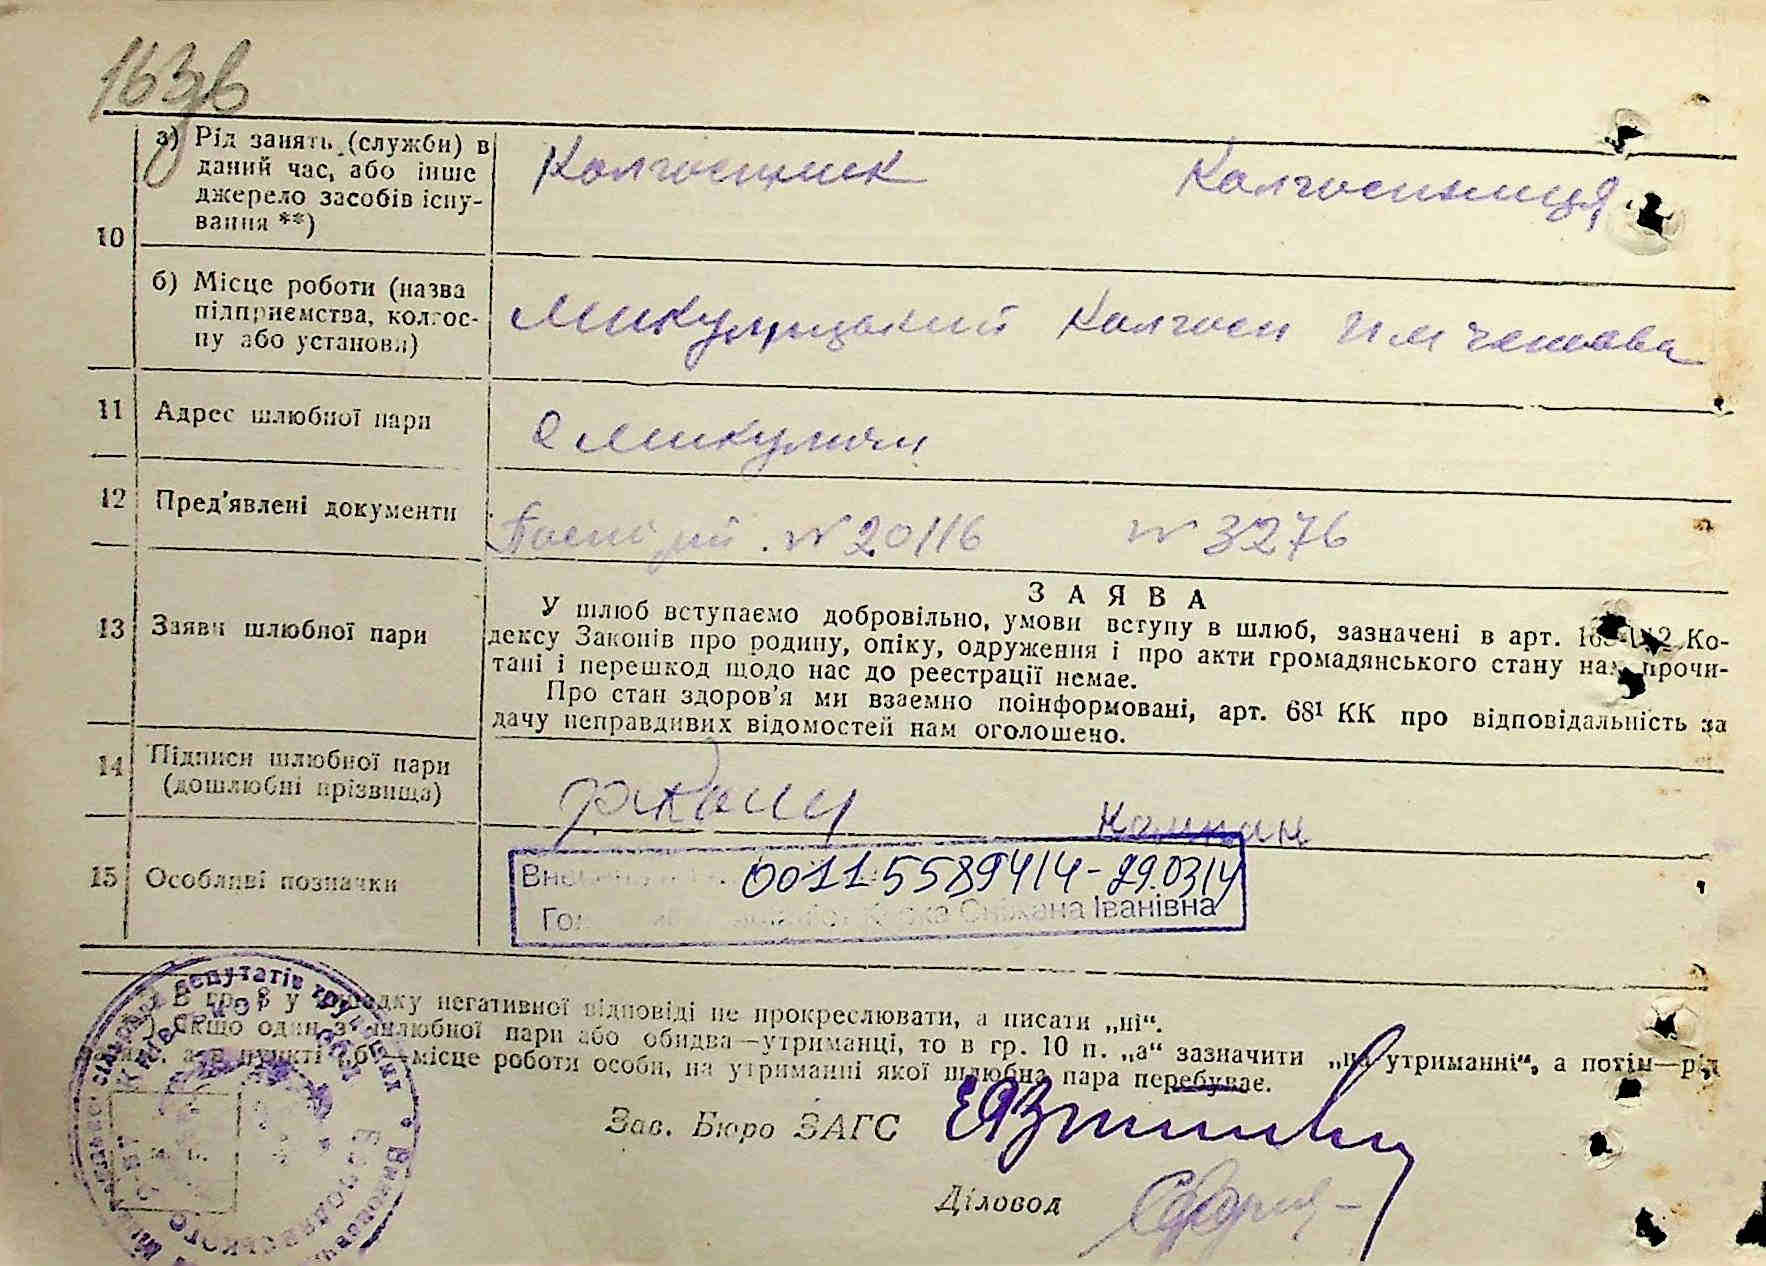 163 зв
а) Рід занять (служби) в
даний час, або інше
джерело засобів існу-
вання **)
10
Колгоспник Колгоспниця
б) Місце роботи (назва
підприємства, колгос-
пу або установи)
Микулицький Колгосп им
11 Адрес шлюбної пари
с Микуличи
12 Пред'явлені документи
№ 20116 № 3276
13 Заяви шлюбної пари
ЗАЯВА
У шлюб вступаємо добровільно, умови вступу в шлюб, зазначені в арт. Ко-
дексу Законів про родину, опіку, одруження і про акти громадянського стану нам прочи-
тані і перешкод щодо нас до реєстрації немає.
Про стан здоров'я ми взаємно поінформовані, арт. 68¹ КК про відповідальність за
дачу неправдивих відомостей нам оголошено.
14 Підписи шлюбної пари
(дошлюбні прізвища)
15 Особливі позначки
00115589414-29.03.14
Сніжана Іванівна
В гр. 8 у випадку негативної відповіді не прокреслювати, а писати „ні“.
Якщо один з шлюбної пари або обидва—утриманці, то в гр. 10 п. „а“ зазначити „на утриманні“, а потім—рід
а в пункті „б“—місце роботи особи, на утриманні якої шлюбна пара перебуває.
Зав. Бюро ЗАГС
Діловод
депутатів трудящих